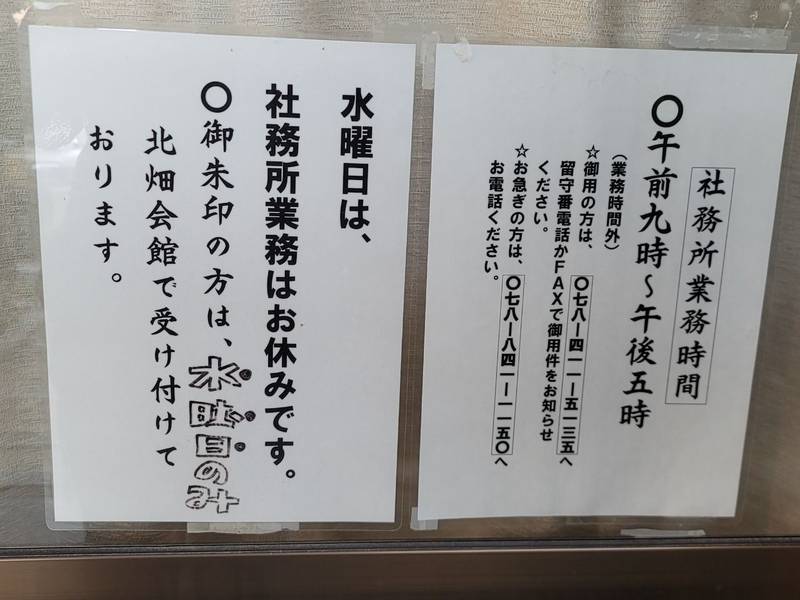 社務所業務時間
〇午前九時～午後五時
(業務時間外)
☆御用の方は、〇七八ー四一一ー五一三五へ
留守番電話かFAXで御用件をお知らせ
ください。
☆お急ぎの方は、〇七八ー八四一ー一一五〇へ
お電話ください。
水曜日は、
社務所業務はお休みです。
〇御朱印の方は、水曜日のみ
北畑会館で受け付けて
おります。